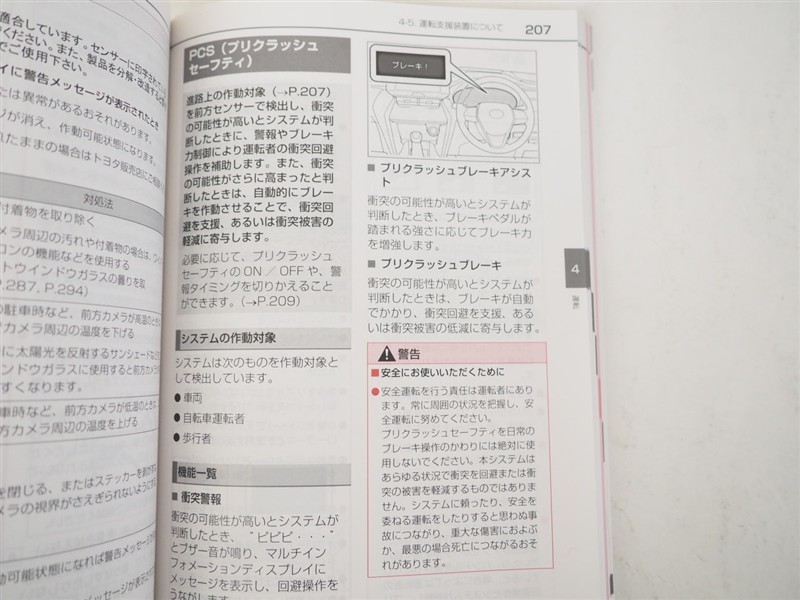 適合しています。センサーに印字されて
ください。また、製品を分解・改造する
でご使用下さい。
イに警告メッセージが表示されたとき
たは異常があるおそれがあります。
ジが消え、作動可能状態になります。
れたままの場合はトヨタ販売店にご相談
対処法
付着物を取り除く
メラ周辺の汚れや付着物の場合は、ワイ
ロンの機能などを使用する
トウインドウガラスの曇りを取
P.287, P.294)
の駐車時など、前方カメラが高温のとき
カメラ周辺の温度を下げる
に太陽光を反射するサンシェードなど
インドウガラスに使用すると前方カメラ
すくなります。
車時など、前方カメラが低温のとき
方カメラ周辺の温度を上げる
を閉じる、またはステッカーを剥がす
メラの視界がさえぎられないようにする
動可能状態になれば警告メッセージが
4-5. 運転支援装置について
207
PCS（プリクラッシュ
セーフティ）
進路上の作動対象（→P.207）
を前方センサーで検出し、衝突
の可能性が高いとシステムが判
断したときに、警報やブレーキ
力制御により運転者の衝突回避
操作を補助します。また、衝突
の可能性がさらに高まったと判
断したときは、自動的にブレー
キを作動させることで、衝突回
避を支援、あるいは衝突被害の
軽減に寄与します。
必要に応じて、プリクラッシュ
セーフティの ON ／ OFF や、警
報タイミングを切りかえること
ができます。（→P.209）
システムの作動対象
システムは次のものを作動対象と
して検出しています。
● 車両
● 自転車運転者
● 歩行者
機能一覧
■ 衝突警報
衝突の可能性が高いとシステムが
判断したとき、“ピピピ・・・”
とブザー音が鳴り、マルチイン
フォメーションディスプレイに
メッセージを表示し、回避操作を
うながします。
ブレーキ！
■ プリクラッシュブレーキアシス
ト
衝突の可能性が高いとシステムが
判断したとき、ブレーキペダルが
踏まれる強さに応じてブレーキ力
を増強します。
■ プリクラッシュブレーキ
衝突の可能性が高いとシステムが
判断したときは、ブレーキが自動
でかかり、衝突回避を支援、ある
いは衝突被害の低減に寄与します。
警告
■ 安全にお使いいただくために
● 安全運転を行う責任は運転者にあり
ます。常に周囲の状況を把握し、安
全運転に努めてください。
プリクラッシュセーフティを日常の
ブレーキ操作のかわりには絶対に使
用しないでください。本システムは
あらゆる状況で衝突を回避または衝
突の被害を軽減するものではありま
せん。システムに頼ったり、安全を
委ねる運転をしたりすると思わぬ事
故につながり、重大な傷害におよぶ
か、最悪の場合死亡につながるおそ
れがあります。
4
運転